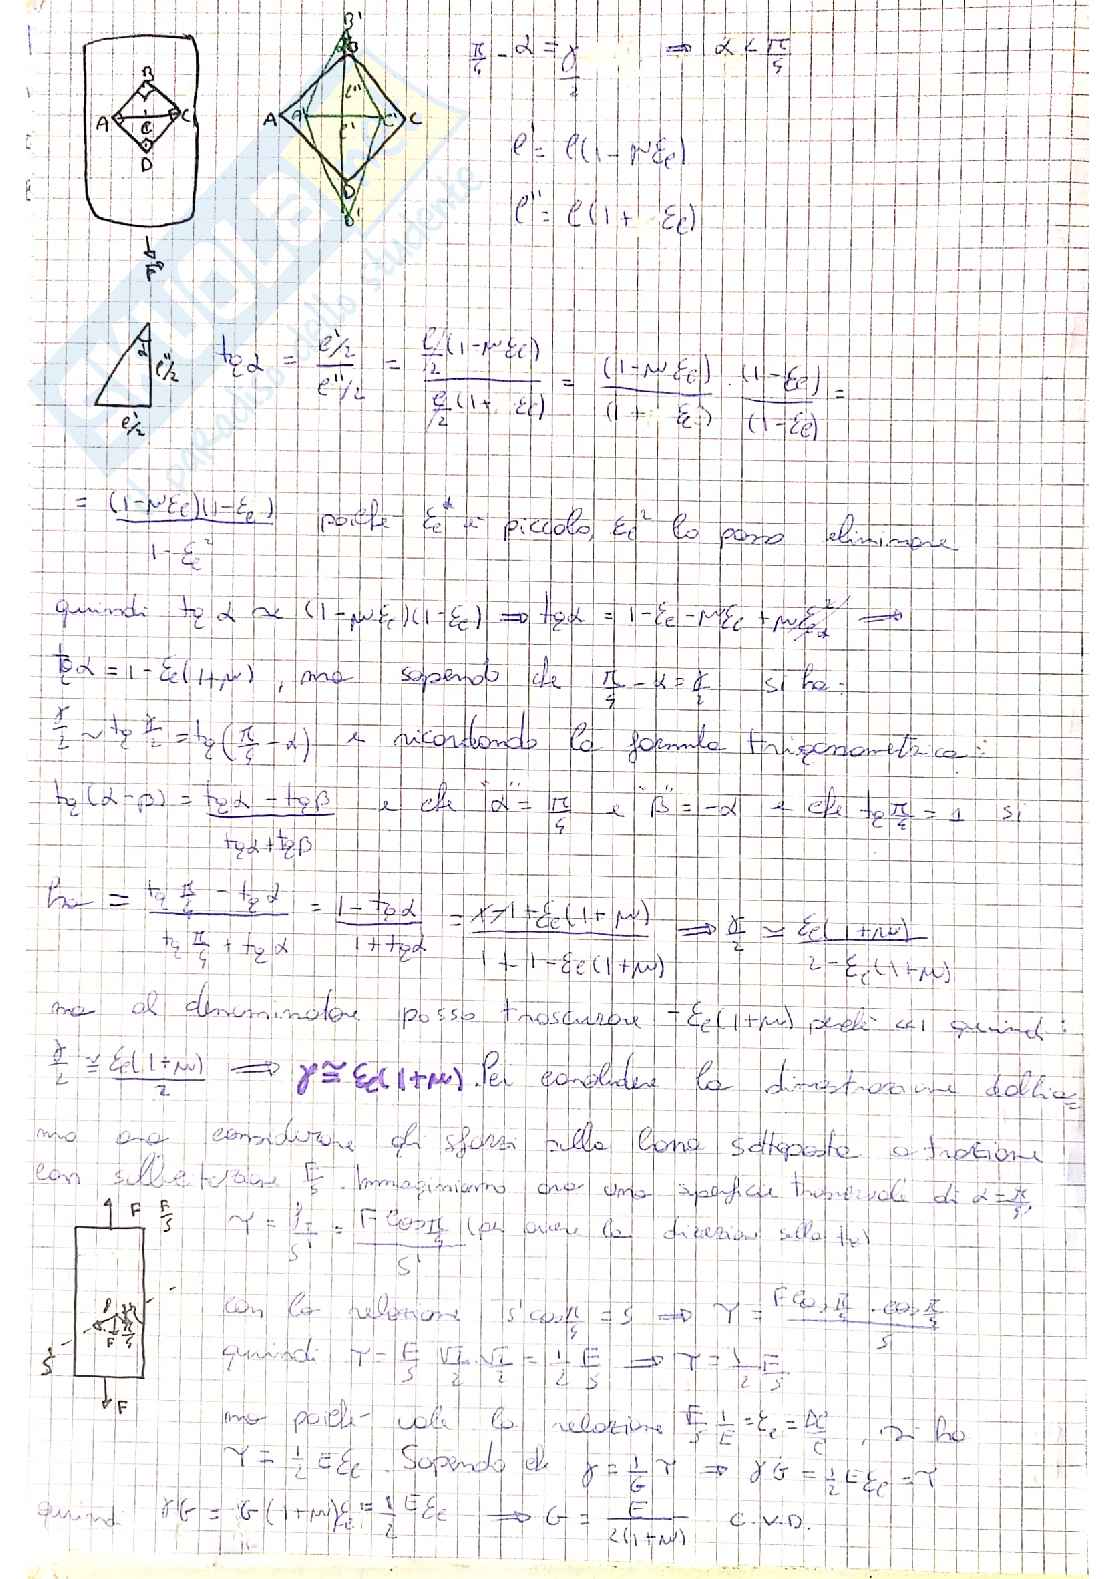 π/4 - α = γ/2 ⇒ α < π/4
B
A
C
ℓ
D
F
B'
B
ℓ''
A
A'
ℓ'
C'
C
D
D'
ℓ' = ℓ(1-μεℓ)
ℓ'' = ℓ(1+ εℓ)
α
ℓ''/2
ℓ'/2
tgα = (ℓ'/2)/(ℓ''/2) = (ℓ/2 (1-μεℓ))/(ℓ/2 (1+ εℓ)) = (1-μεℓ)/(1+ εℓ) · (1-εℓ)/(1-εℓ) =
= (1-μεℓ)(1-εℓ)/(1-εℓ²) poiché εℓ è piccolo, εℓ² lo posso eliminare
quindi tgα ≈ (1-μεℓ)(1-εℓ) ⇒ tgα = 1-εℓ-μεℓ+μεℓ² ⇒
tgα = 1-εℓ(1+μ), ma sapendo che π/4 - α = γ/2 si ha:
γ/2 ~ tg γ/2 = tg(π/4 - α) e ricordando la formula trigonometrica:
tg(α-β) = (tgα - tgβ)/(tgα + tgβ) e che "α" = π/4 e "β" = -α e che tg π/4 = 1 si
ha = (tg π/4 - tgα)/(tg π/4 + tgα) = (1-tgα)/(1+tgα) = (1-1+εℓ(1+μ))/(1+1-εℓ(1+μ)) ⇒ γ/2 ≃ εℓ(1+μ)/(2-εℓ(1+μ))
ma al denominatore posso trascurare -εℓ(1+μ) perché quindi:
γ/2 ≅ εℓ(1+μ)/2 ⇒ γ ≅ εℓ(1+μ). Per concludere la dimostrazione dobbia=
mo ora considerare gli sforzi nella sottoposta a trazione
con sollecitazione F/S. Immaginiamo ora una superficie trasversale di α=π/4,
τ = /S' = F cos π/4 /S' (per avere la direzione della )
F
F/S
F
S'
F
con la relazione S' cos π/4 = S ⇒ τ = F cos π/4 · cos π/4 / S
quindi τ = F/S √2/2 · √2/2 = 1/2 F/S ⇒ τ = 1/2 F/S
ma poiché vale la relazione F/S 1/E = εℓ = Δℓ/ℓ, si ha
τ = 1/2 Eεℓ. Sapendo che γ = 1/G τ ⇒ γG = 1/2 Eεℓ = τ
quindi γG = G(1+μ)εℓ = 1/2 Eεℓ ⇒ G = E/2(1+μ) C.V.D.